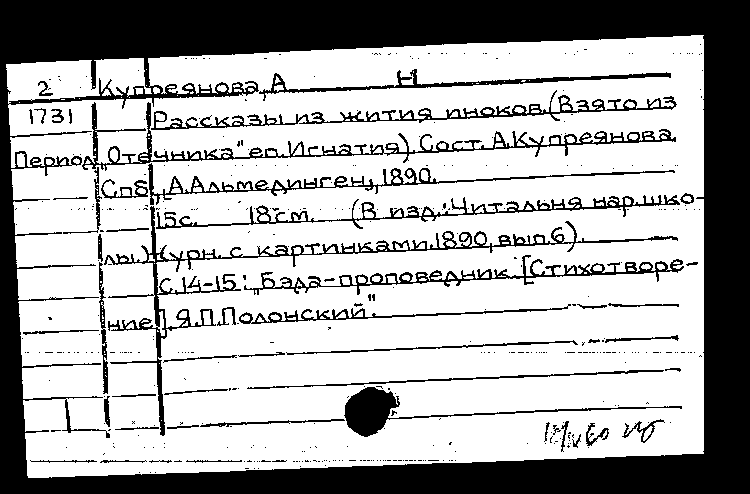 2 Купреянова, А Н
1731 Рассказы из жития иноков. (Взято из
Период. „Отечника" еп. Игнатия). Сост. А. Купреянова.
Спб, „А. Альмединген", 1890.
15с. 18см. (В изд.: Читальня нар. шко-
лы.) Журн. с картинками. 1890, вып. 6).
С. 14-15: „Бэда-проповедник. [Стихотворе-
ние]. Я. П. Полонский".